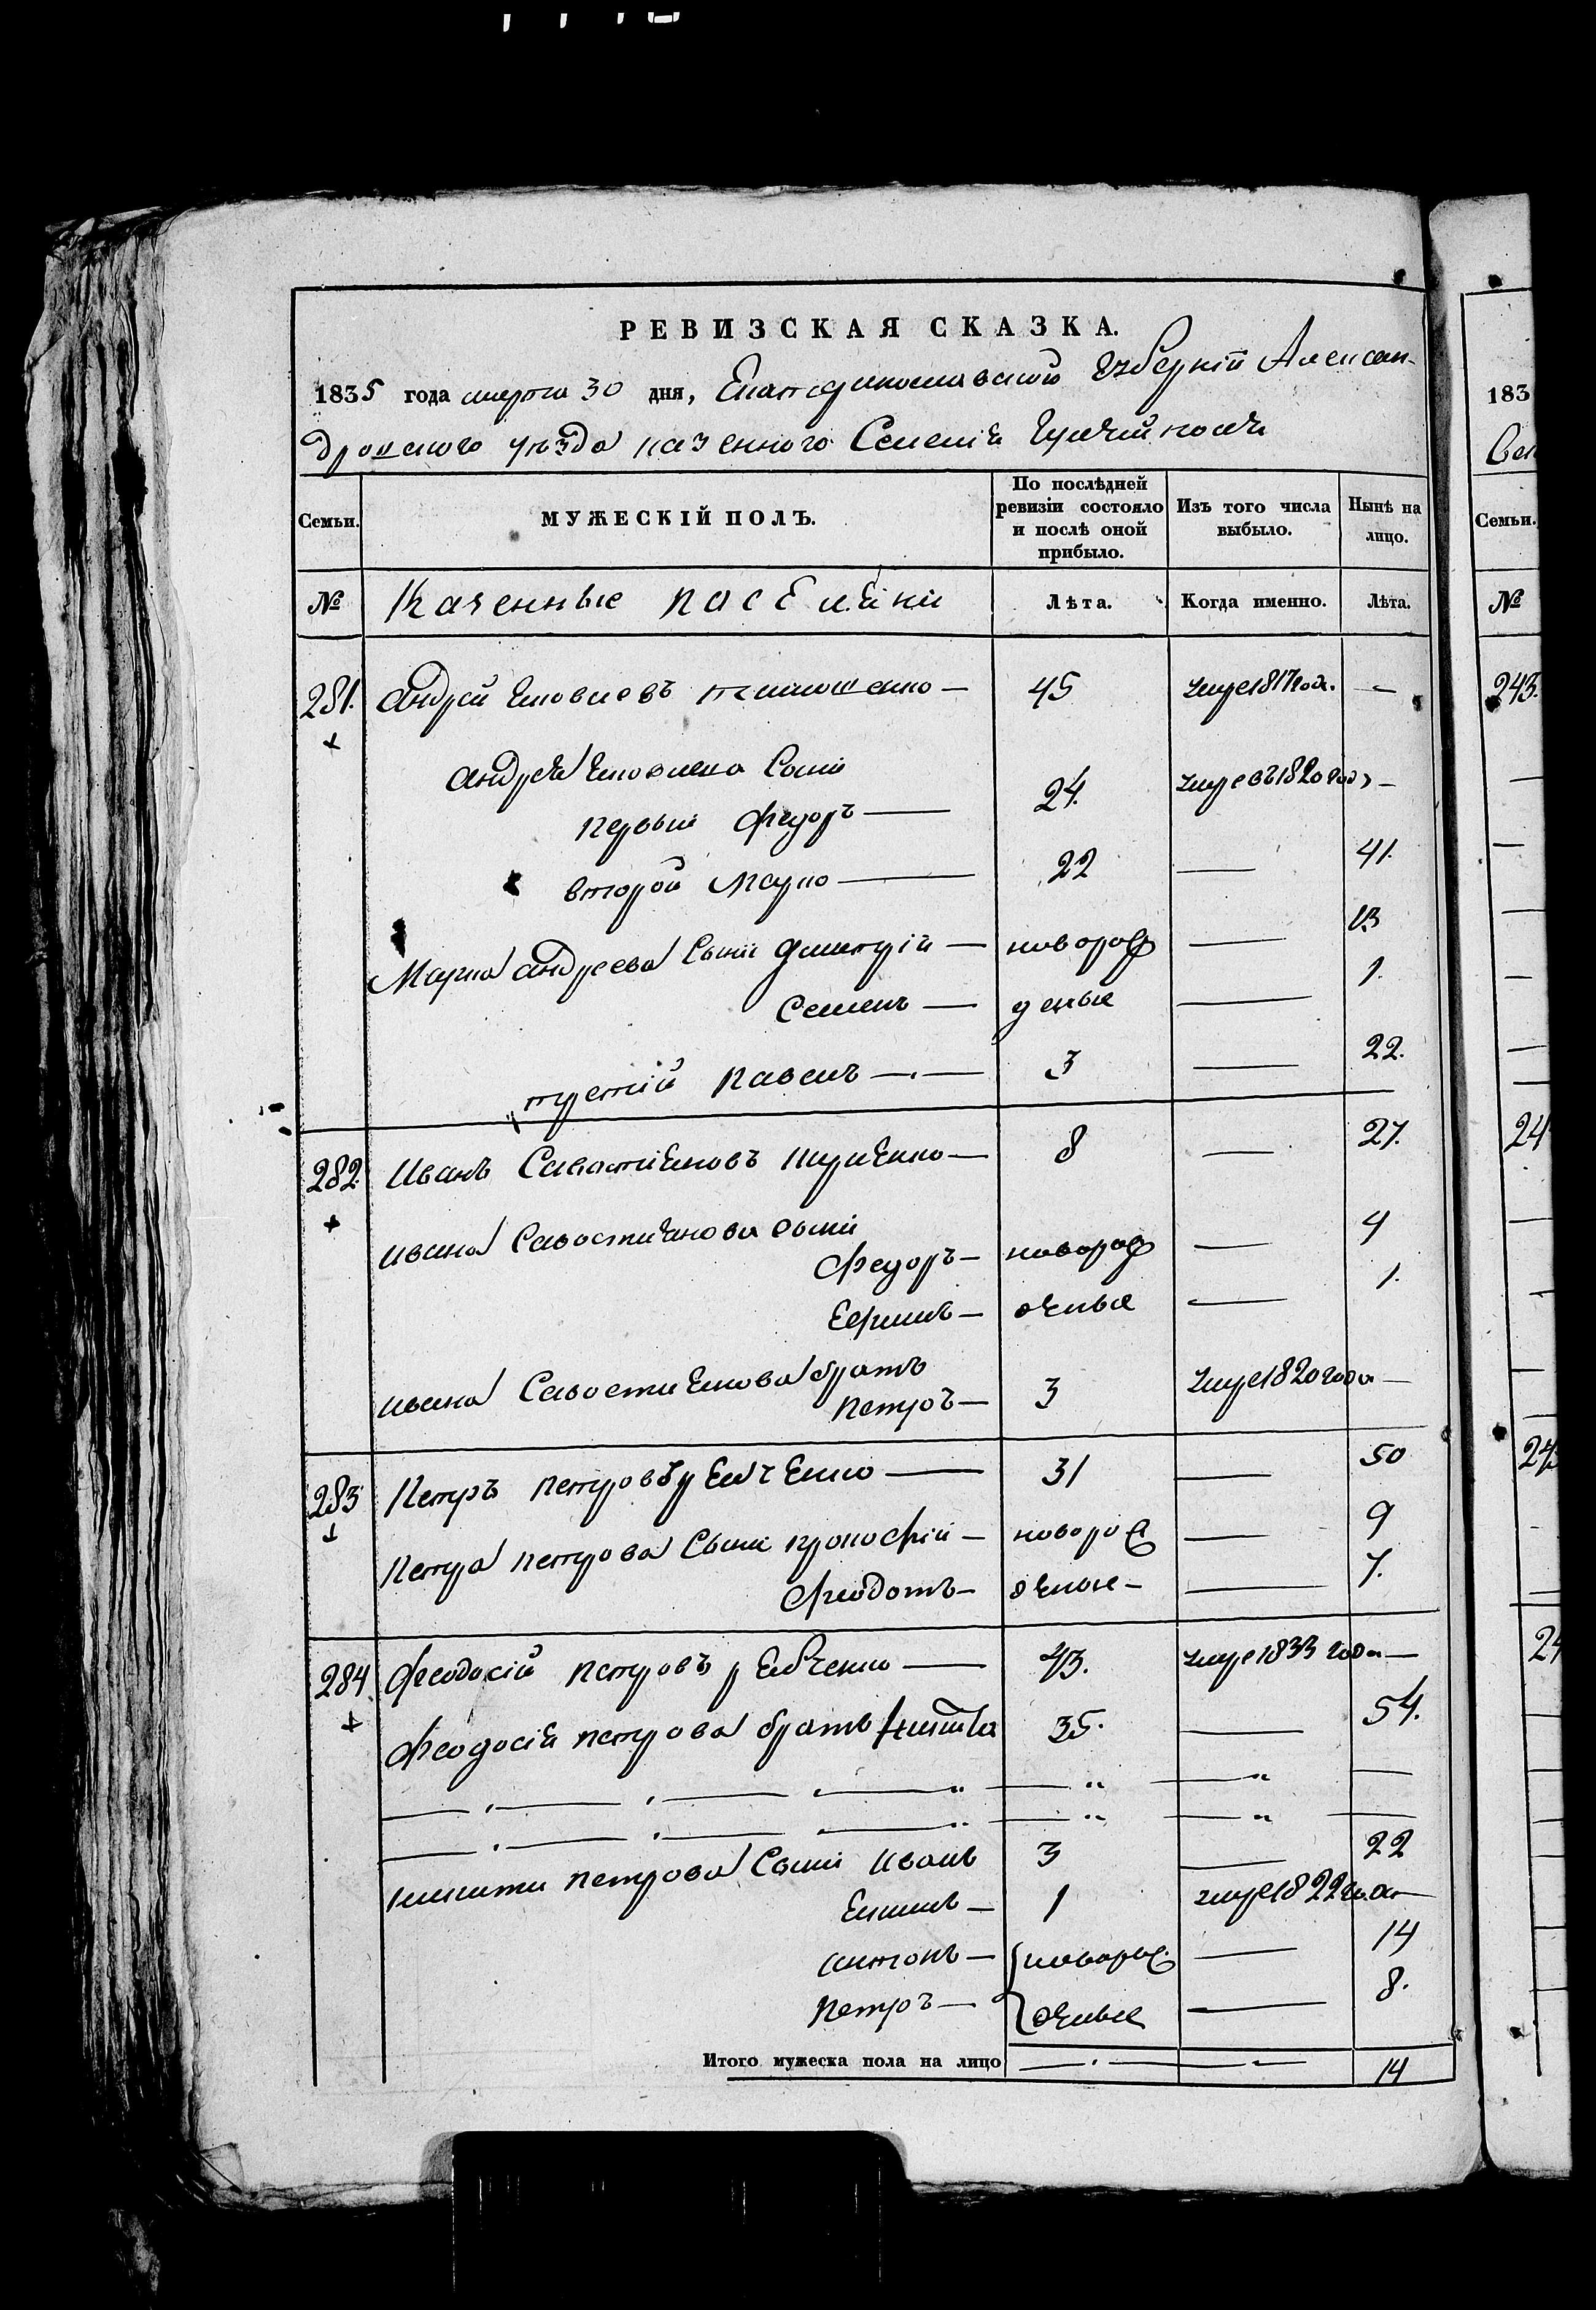 РЕВИЗСКАЯ СКАЗКА.
1835 года марта 30 дня, Екатеринославской губерніи Алексан-
дровского уѣзда казенного Селенія
Семьи. МУЖЕСКІЙ ПОЛЪ. По послѣдней ревизіи состояло и послѣ оной прибыло. Изъ того числа выбыло. Нынѣ на лицо.
№ Казенные поселяни Лѣта. Когда именно. Лѣта.
281. андрей яковлевъ тимошенко — 45 умре 1817 года. —
андрея яковлева Сыни
первый Федоръ — 24. умре въ 1820 год —
второй Марко — 22 — 41.
Марка андреева Сыни дмитрій — новорож — 13
Семенъ — деные — 1.
третій павелъ — 3 — 22.
282. Иванъ Савостияновъ — 8 — 27.
ивана Савостиянова сыни
Федоръ — новорож — 4
Ефимъ — деные — 1.
ивана Савостиянова братъ
петръ — 3 умре 1820 года —
283 Петръ петровъ рябченко — 31 — 50
петра петрова Сыни прокофій — новорож — 9
Феодотъ — деные — — 7.
284. Феодосій петровъ рябченко — 43. умре 1833 года —
Феодосія петрова братъ никита 35. — 54.
никити петрова Сыни иванъ 3 — 22
якимъ — 1 умре 1822 года —
антонъ — новорож — 14
петръ — деные — 8.
Итого мужеска пола на лицо — — 14
183
Сел
Семьи.
№
243.
24
24
24